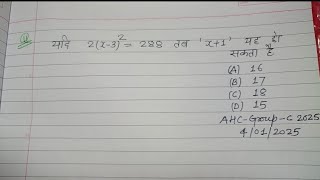 यदि 2(x-3)² = 288 तब 'x+1' यह हो
सकता है
(A) 16
(B) 17
(C) 18
(D) 15
AHC-Group-C 2025
4/01/2025